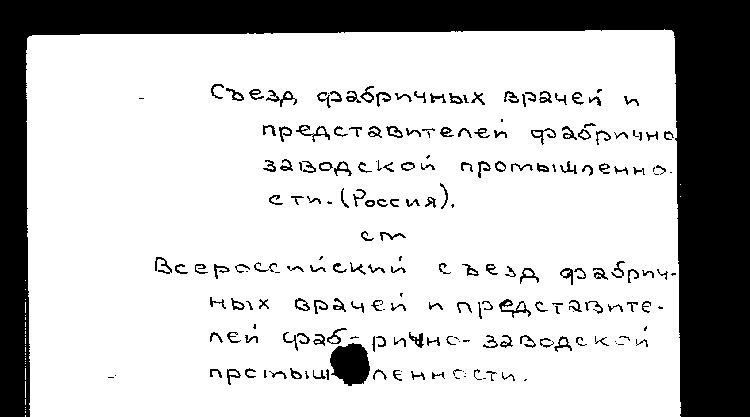 Съезд фабричных врачей и
представителей фабрично-
заводской промышленно-
сти. (Россия).
см
Всероссийский съезд фабрич-
ных врачей и представите-
лей фаб-рично-заводской
промышленности.